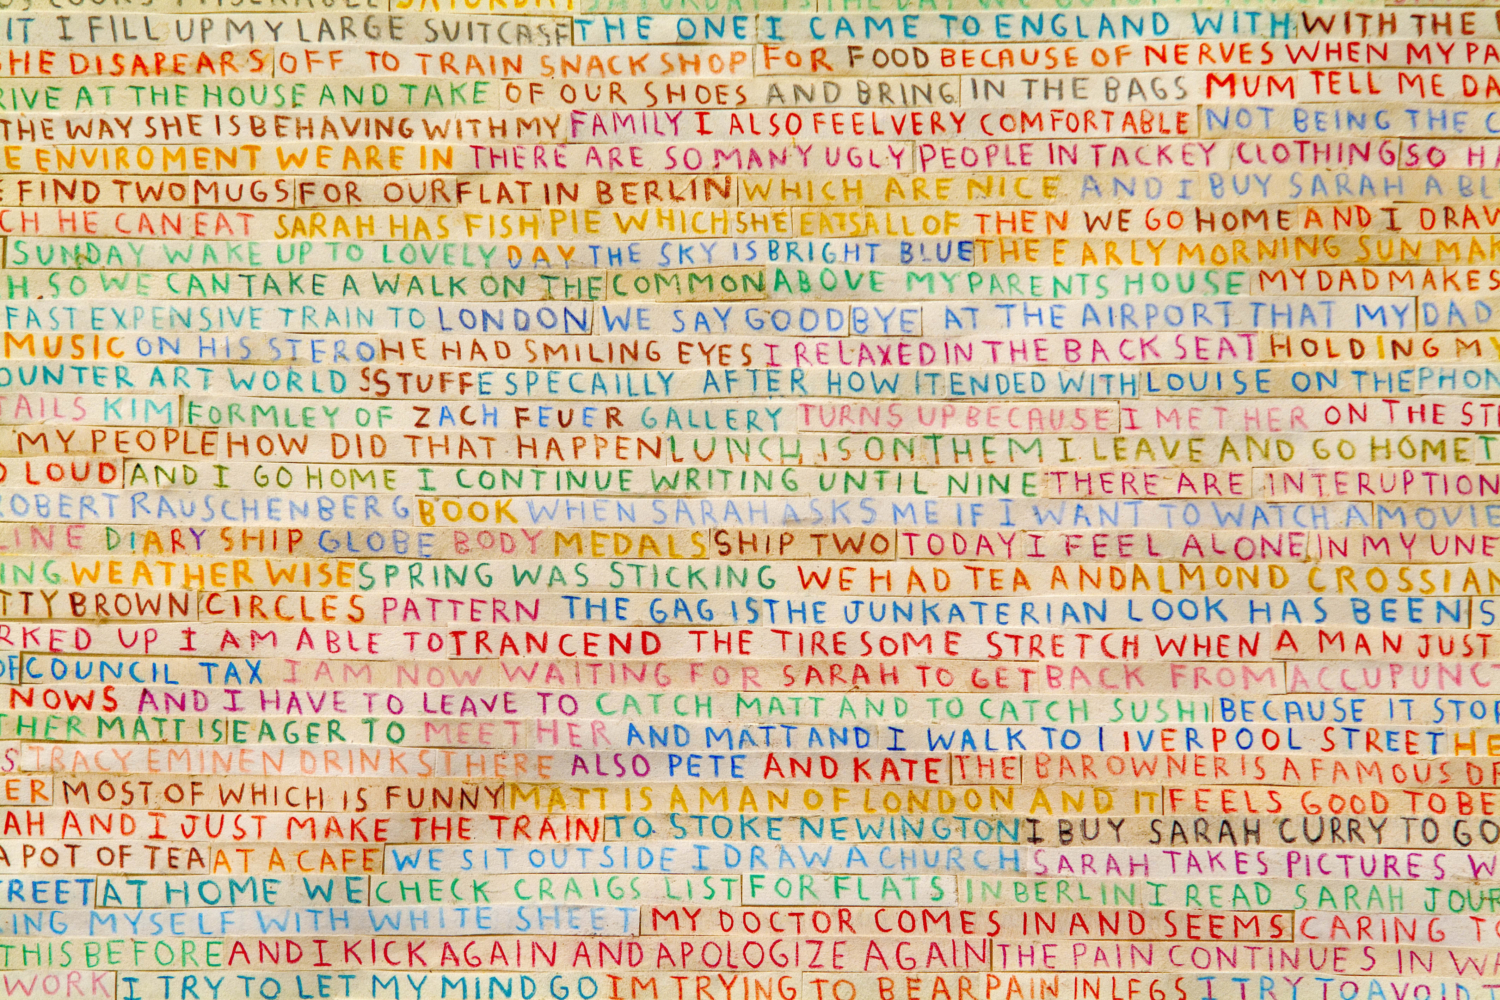 SATURDAY
IT I FILL UP MY LARGE SUITCASE THE ONE I CAME TO ENGLAND WITH WITH THE
HE DISAPEARS OFF TO TRAIN SNACK SHOP FOR FOOD BECAUSE OF NERVES WHEN MY PA
RIVE AT THE HOUSE AND TAKE OF OUR SHOES AND BRING IN THE BAGS MUM TELL ME DA
THE WAY SHE IS BEHAVING WITH MY FAMILY I ALSO FEEL VERY COMFORTABLE NOT BEING THE C
E ENVIROMENT WE ARE IN THERE ARE SO MANY UGLY PEOPLE IN TACKEY CLOTHING SO HA
E FIND TWO MUGS FOR OUR FLAT IN BERLIN WHICH ARE NICE AND I BUY SARAH A BL
CH HE CAN EAT SARAH HAS FISH PIE WHICH SHE EATS ALL OF THEN WE GO HOME AND I DRAW
SUNDAY WAKE UP TO LOVELY DAY THE SKY IS BRIGHT BLUE THE EARLY MORNING SUN MAK
H. SO WE CAN TAKE A WALK ON THE COMMON ABOVE MY PARENTS HOUSE MY DAD MAKES
FAST EXPENSIVE TRAIN TO LONDON WE SAY GOODBYE AT THE AIRPORT THAT MY DAD
MUSIC ON HIS STERO HE HAD SMILING EYES I RELAXED IN THE BACK SEAT HOLDING MY
OUNTER ART WORLD SSTUFF ESPECAILLY AFTER HOW IT ENDED WITH LOUISE ON THE PHON
TAILS KIM FORMLEY OF ZACH FEUER GALLERY TURNS UP BECAUSE I MET HER ON THE ST
MY PEOPLE HOW DID THAT HAPPEN LUNCH IS ON THEM I LEAVE AND GO HOME T
O LOUD AND I GO HOME I CONTINUE WRITING UNTIL NINE THERE ARE INTERUPTION
ROBERT RAUSCHENBERG BOOK WHEN SARAH ASKS ME IF I WANT TO WATCH A MOVIE
LINE DIARY SHIP GLOBE BODY MEDALS SHIP TWO TODAY I FEEL ALONE IN MY UNE
ING WEATHER WISE SPRING WAS STICKING WE HAD TEA AND ALMOND CROSSIAN
TTY BROWN CIRCLES PATTERN THE GAG IS THE JUNKATERIAN LOOK HAS BEEN S
RKED UP I AM ABLE TO TRANCEND THE TIRESOME STRETCH WHEN A MAN JUST
OF COUNCIL TAX I AM NOW WAITING FOR SARAH TO GET BACK FROM ACCUPUNCT
NOWS AND I HAVE TO LEAVE TO CATCH MATT AND TO CATCH SUSHI BECAUSE IT STOP
THER MATT IS EAGER TO MEET HER AND MATT AND I WALK TO LIVERPOOL STREET HE
S TRACY EMINEN DRINKS THERE ALSO PETE AND KATE THE BAR OWNER IS A FAMOUS DR
ER MOST OF WHICH IS FUNNY MATT IS A MAN OF LONDON AND IT FEELS GOOD TO BE
AH AND I JUST MAKE THE TRAIN TO STOKE NEWINGTON I BUY SARAH CURRY TO GO
A POT OF TEA AT A CAFE WE SIT OUTSIDE I DRAW A CHURCH SARAH TAKES PICTURES W
TREET AT HOME WE CHECK CRAIGS LIST FOR FLATS IN BERLIN I READ SARAH JOUR
ING MYSELF WITH WHITE SHEET MY DOCTOR COMES IN AND SEEMS CARING TO
THIS BEFORE AND I KICK AGAIN AND APOLOGIZE AGAIN THE PAIN CONTINUES IN WA
WORK I TRY TO LET MY MIND GO IM TRYING TO BEAR PAIN IN LEGS I TRY TO AVOID T